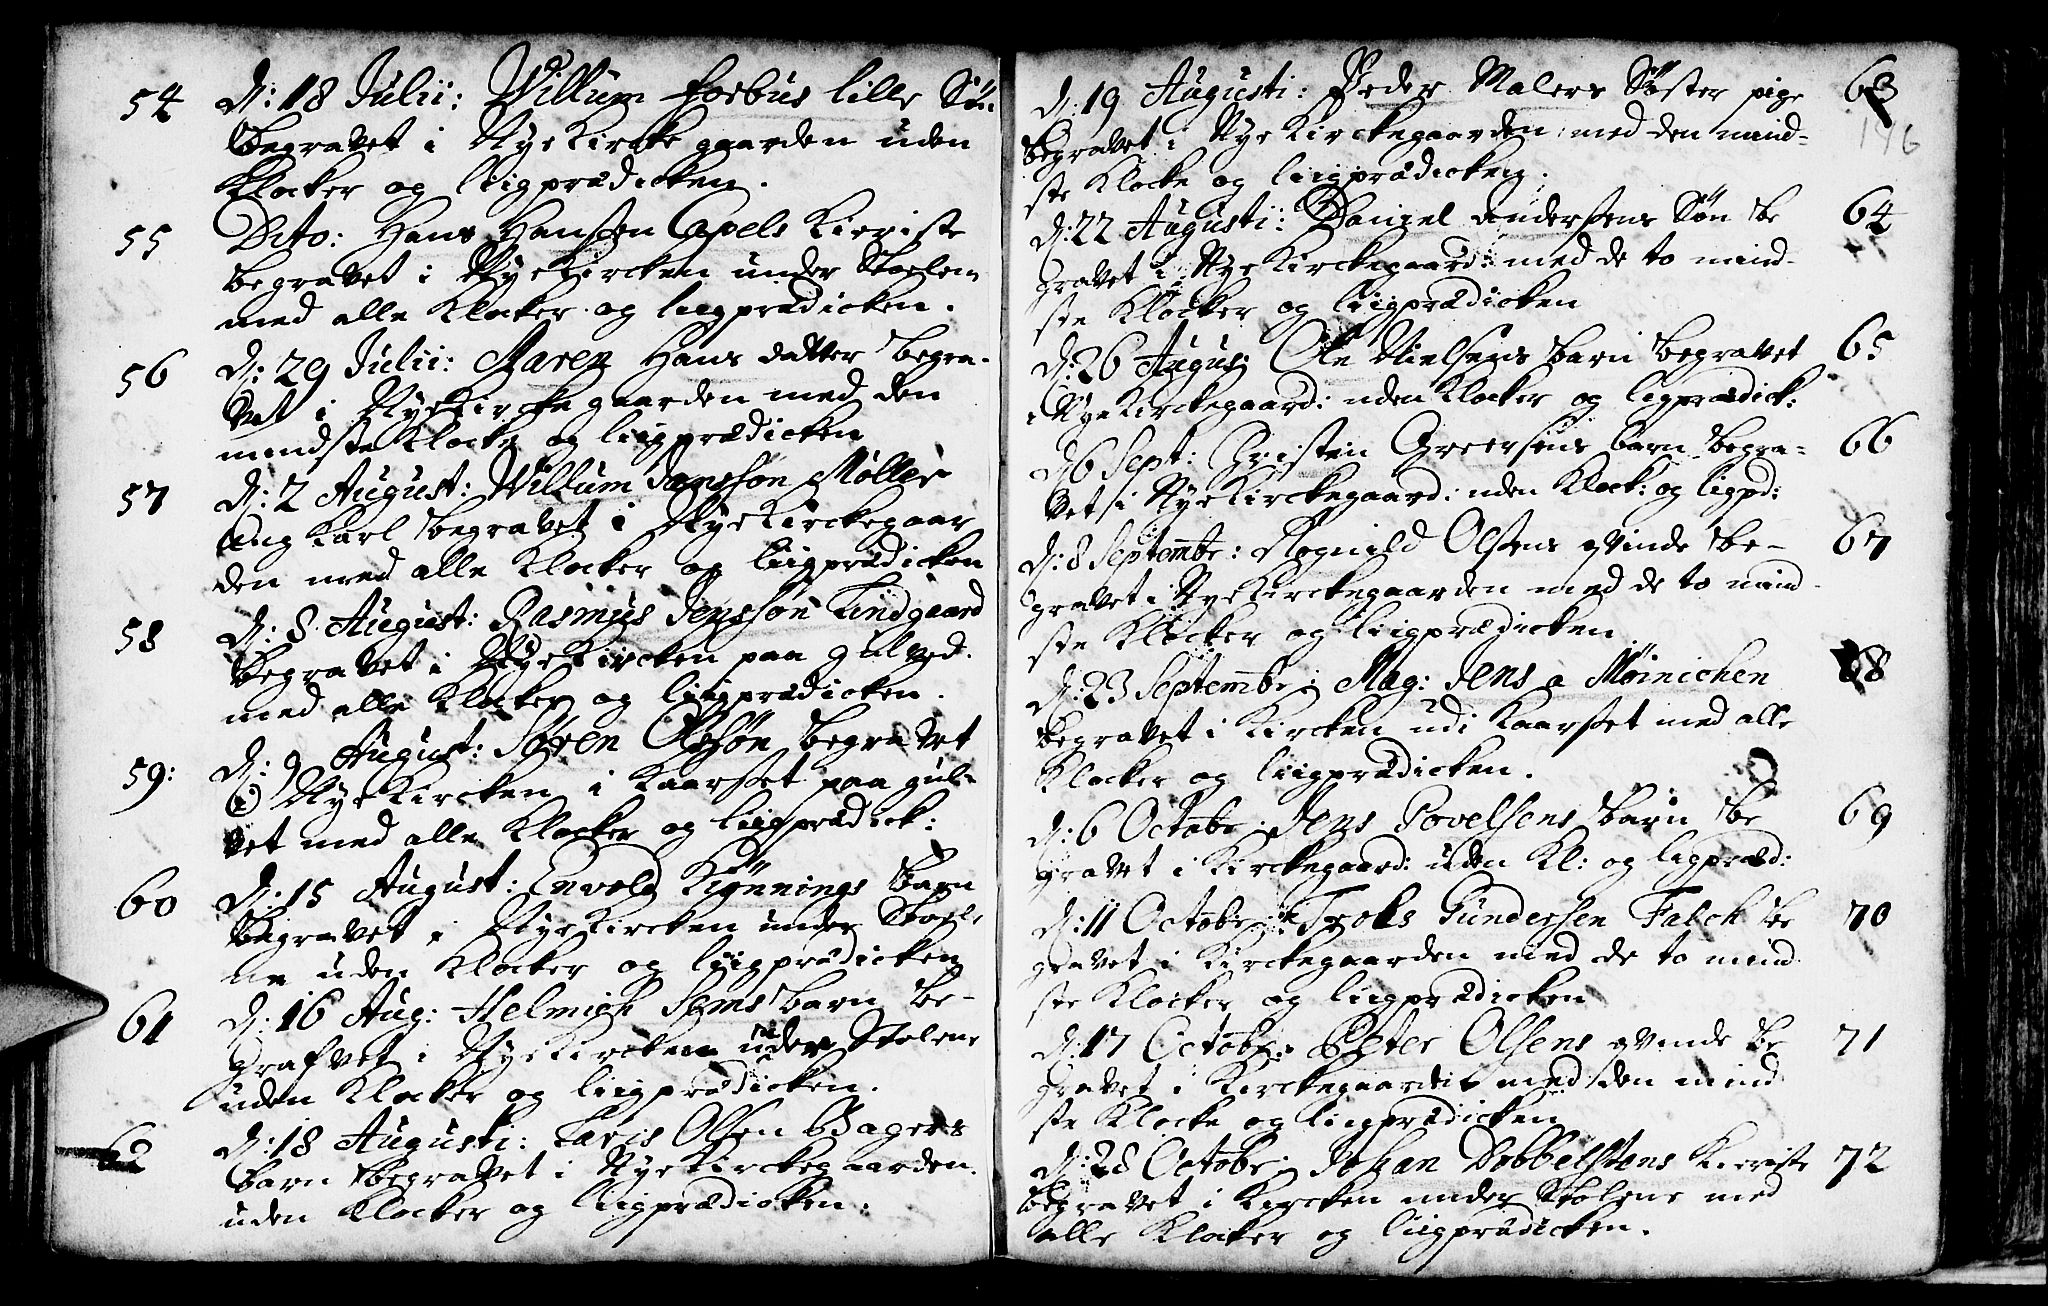 54 d: 18 Julii: Willum forbus lille Søn
begravet i Nye Kircke gaarden uden
Klocker og liigprædicken.
55 Dito: Hans Hanssøn Apels Kieriste
begravet i Nye Kircken under Stoelen
med alle Klocker og liigprædicken.
56 d: 29 Julii: Maren Hans datter begra-
vet i Nye Kircke gaarden med den
mindste Klocke og liigprædicken
57 d: 2 August: Willum Jenssøn Møller
ung Karl begravet i Nye Kirckegaar
den med alle Klocker og liigprædicken
58 d: 8 August: Rasmus Jenssøn Lindgaard
begravet i Nye Kircken paa gulved.
med alle Klocker og liigprædicken.
59: d: 9 August: Søren Olssøn begravet
i Nye Kircken i Kaarset paa gul-
vet med alle Klocker og liigprædick:
60 d: 15 August: Envold Kiønnings barn
begravet i Nye Kircken under Stoele
ne uden Klocker og liigprædicken
61 d: 16 Aug: Helmich Sems barn be-
grafvet i Nye Kircken under Stolene
uden Klocker og liigprædicken.
62 d: 18 Augusti: Laris Olsen Bagers
barn begravet i Nye Kirckegaarden.
uden Klocker og liigprædicken.
146
d: 19 Augusti: Peder Malers Søster pige 63
begravet i Nye Kirckegaarden med den mind-
ste Klocke og liigprædicken.
d: 22 Augusti: Daniel Andersens Søn be 64
gravet i Nye Kirckegaard: med de to mind-
ste Klocker og liigprædicken
d: 26 Augus: Ole Nielsens barn begravet 65
i Nye Kirckegaard: uden Klocker og ligprædick:
d 6 Sept: Christen Greersens barn begra- 66
vet i Nye Kirckegaard: uden Klock: og ligpd:
d: 8 Septembr: Rognild Olsens qvinde be- 67
gravet i Nye Kirckegaarden med de to mind-
ste Klocker og liigprædicken
d: 23 Septembr: Mag: Jens a Møinichen 68
begravet i Kircken udi Kaarset med alle
Klocker og liigprædicken.
d: 6 Octobr: Jens Povelsens barn be 69
gravet i Kirckegaard: uden Kl: og ligpræd:
d: 11 Octobr: Trols Gundersen Falck be 70
gravet i Kirckegaarden med de to mind
ste Klocker og liigprædicken
d: 17 Octobr: Peter Olsens qvinde be 71
gravet i Kirckegaarden med den mind
ste Klocke og liigprædicken
d: 28 Octobr: Johan Dobbelstens Kieriste 72
begravet i Kircken under Stolene med
alle Klocker og liigprædicken.